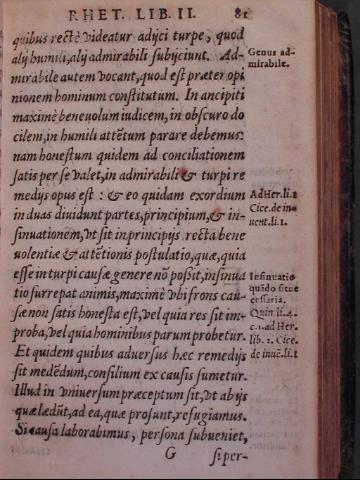 RHET. LIB. II. 81
quibus rectè videatur adyci turpe, quod
alij humili, alij admirabili subyciunt. Ad-
mirabile autem vocant, quod est præter opi
nionem hominum constitutum. In ancipiti
maximè beneuolum iudicem, in obscuro do
cilem, in humili attẽtum parare debemus:
nam honestum quidem ad conciliationem
satis per se valet, in admirabili & turpi re
medys opus est: & eo quidam exordium
in duas diuidunt partes, principium, & in-
sinuationem, vt sit in principijs recta bene
uolentiæ & attẽtionis postulatio, quæ, quia
esse in turpi causæ genere nõ possit, insinua
tio surrepat animis, maximè vbi frons cau-
sæ non satis honesta est, vel quia res sit im-
proba, vel quia hominibus parum probetur.
Et quidem quibus aduersus hæc remedijs
sit medẽdum, consilium ex causis sumetur.
Illud in vniuersum præceptum sit, vt ab ijs
quæ lædũt, ad ea, quæ prosunt, refugiamus.
Si causa laborabimus, persona subueniet,
G si per-
Genus ad-
mirabile.
Ad Her. li. 1
Cice. de in-
uent. li. 1.
Insinuatio
quãdo sit ne
cessaria.
Quin. li. 4.
c. 1. ad Her.
lib. 1. Cice.
de inuẽ. li. 1